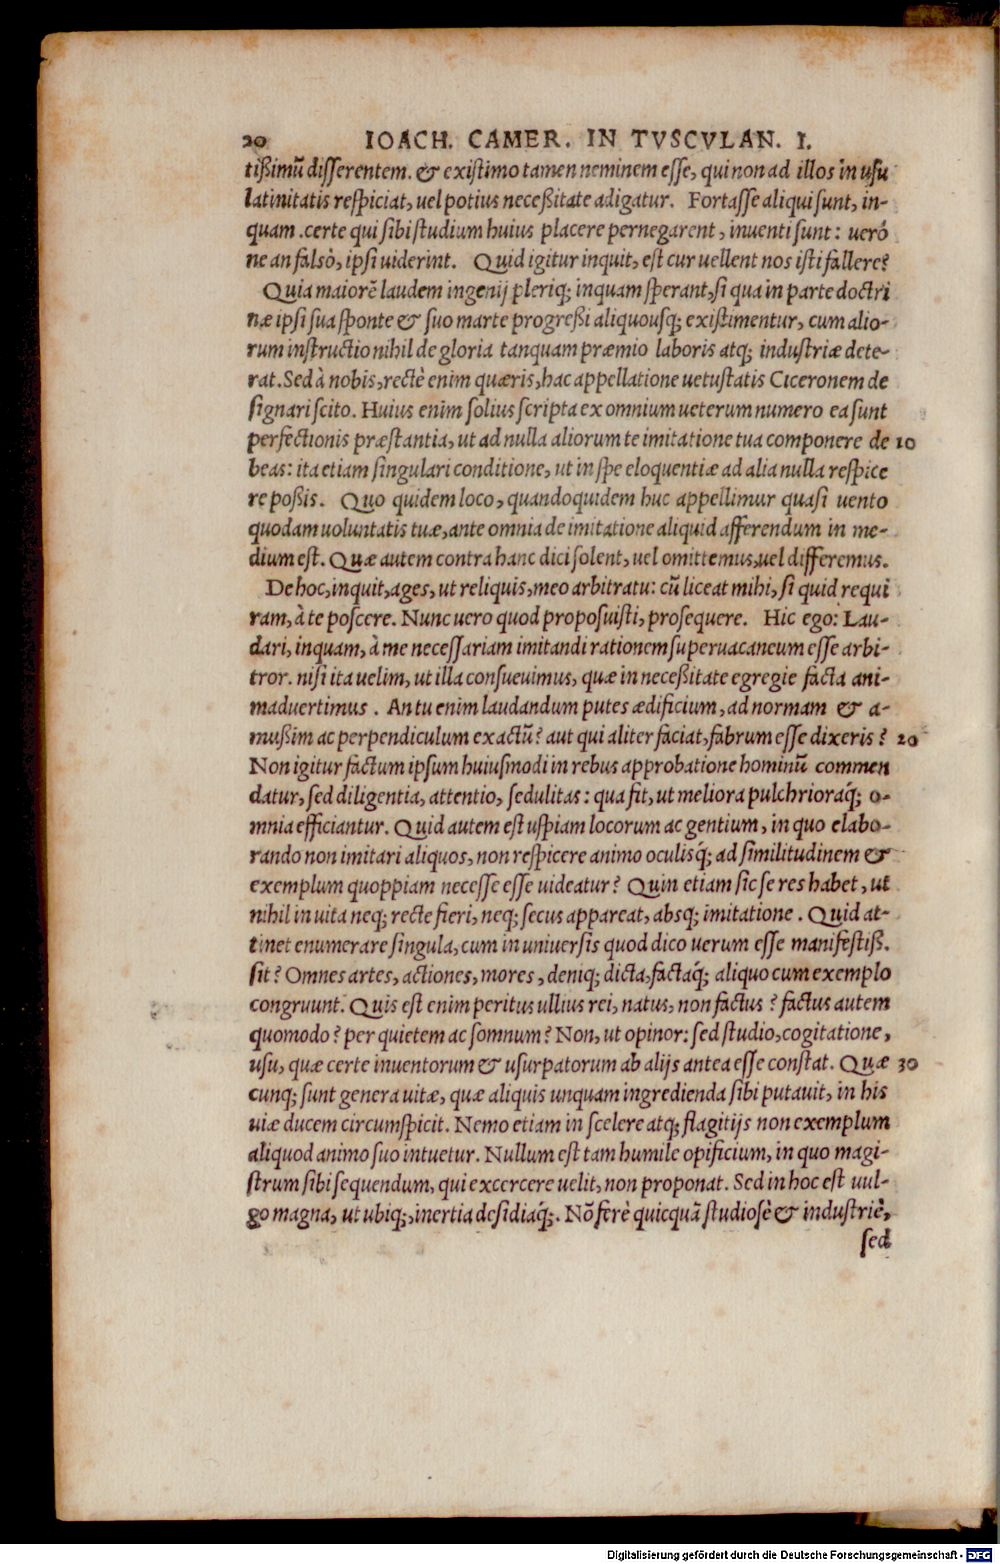 20 IOACH. CAMER. IN TVSCVLAN. I.
tißimũ differentem. & existimo tamen neminem esse, qui non ad illos in usu
latinitatis respiciat, uel potius necessitate adigatur. Fortasse aliqui sunt, in-
quam .certe qui sibi studium huius placere pernegarent, inuenti sunt: ueró
ne an falsò, ipsi uiderint. Quid igitur inquit, est cur uellent nos isti fallere?
Quia maiorẽ laudem ingenij pleriq; inquam sperant, si qua in parte doctri
næ ipsi sua sponte & suo marte progreßi aliquousq; existimentur, cum alio-
rum instructio nihil de gloria tanquam præmio laboris atq; industriæ dete-
rat. Sed à nobis, rectè enim quæris, hac appellatione uetustatis Ciceronem de
signari scito. Huius enim solius scripta ex omnium ueterum numero ea sunt
perfectionis præstantia, ut ad nulla aliorum te imitatione tua componere de 10
beas: ita etiam singulari conditione, ut in spe eloquentiæ ad alia nulla respice
re poßis. Quo quidem loco, quandoquidem huc appellimur quasi uento
quodam uoluntatis tuæ, ante omnia de imitatione aliquid afferendum in me-
dium est. Quæ autem contra hanc dici solent, uel omittemus, uel differemus.
De hoc, inquit, ages, ut reliquis, meo arbitratu: cũ liceat mihi, si quid requi
ram, à te poscere. Nunc uero quod proposuisti, prosequere. Hic ego: Lau-
dari, inquam, à me necessariam imitandi rationem superuacaneum esse arbi-
tror. nisi ita uelim, ut illa consueuimus, quæ in neceßitate egregie facta ani-
maduertimus . An tu enim laudandum putes ædificium, ad normam & a-
mußim ac perpendiculum exactũ? aut qui aliter faciat, fabrum esse dixeris? 20
Non igitur factum ipsum huiusmodi in rebus approbatione hominũ commen
datur, sed diligentia, attentio, sedulitas: qua fit, ut meliora pulchrioraq́; o-
mnia efficiantur. Quid autem est uspiam locorum ac gentium, in quo elabo-
rando non imitari aliquos, non respicere animo oculisq́; ad similitudinem &
exemplum quoppiam necesse esse uideatur? Quin etiam sic se res habet, ut
nihil in uita neq; recte fieri, neq; secus appareat, absq; imitatione . Quid at-
tinet enumerare singula, cum in uniuersis quod dico uerum esse manifestiß.
sit? Omnes artes, actiones, mores, deniq; dicta, factaq́; aliquo cum exemplo
congruunt. Quis est enim peritus ullius rei, natus, non factus ? factus autem
quomodo? per quietem ac somnum? Non, ut opinor: sed studio, cogitatione,
usu, quæ certe inuentorum & usurpatorum ab alijs antea esse constat. Quæ 30
cunq; sunt genera uitæ, quæ aliquis unquam ingredienda sibi putauit, in his
uiæ ducem circumspicit. Nemo etiam in scelere atq; flagitijs non exemplum
aliquod animo suo intuetur. Nullum est tam humile opificium, in quo magi-
strum sibi sequendum, qui excercere uelit, non proponat. Sed in hoc est uul-
go magna, ut ubiq;, inertia desidiaq́;. Nõ ferè quicquã studiosè & industriè,
sed
Digitalisierung gefördert durch die Deutsche Forschungsgemeinschaft - DFG